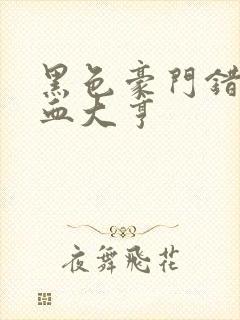 黑色豪門錯
血大亨
夜舞飛花